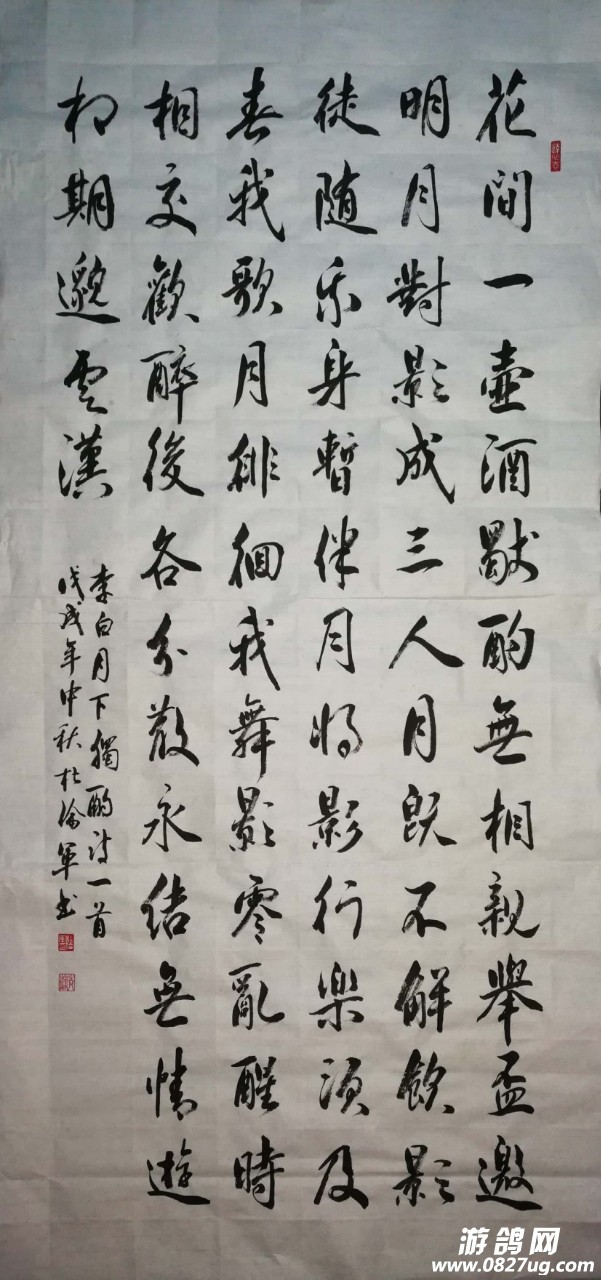 花間一壺酒獨酌無相親舉盃邀
明月對影成三人月既不解飲影
徒随我身暫伴月將影行樂須及
春我歌月徘徊我舞影零亂醒時
相交歡醉後各分散永結無情遊
相期邈雲漢
李白月下獨酌詩一首
戊戌年中秋杜軍书
游鸽网
www.0827ug.com